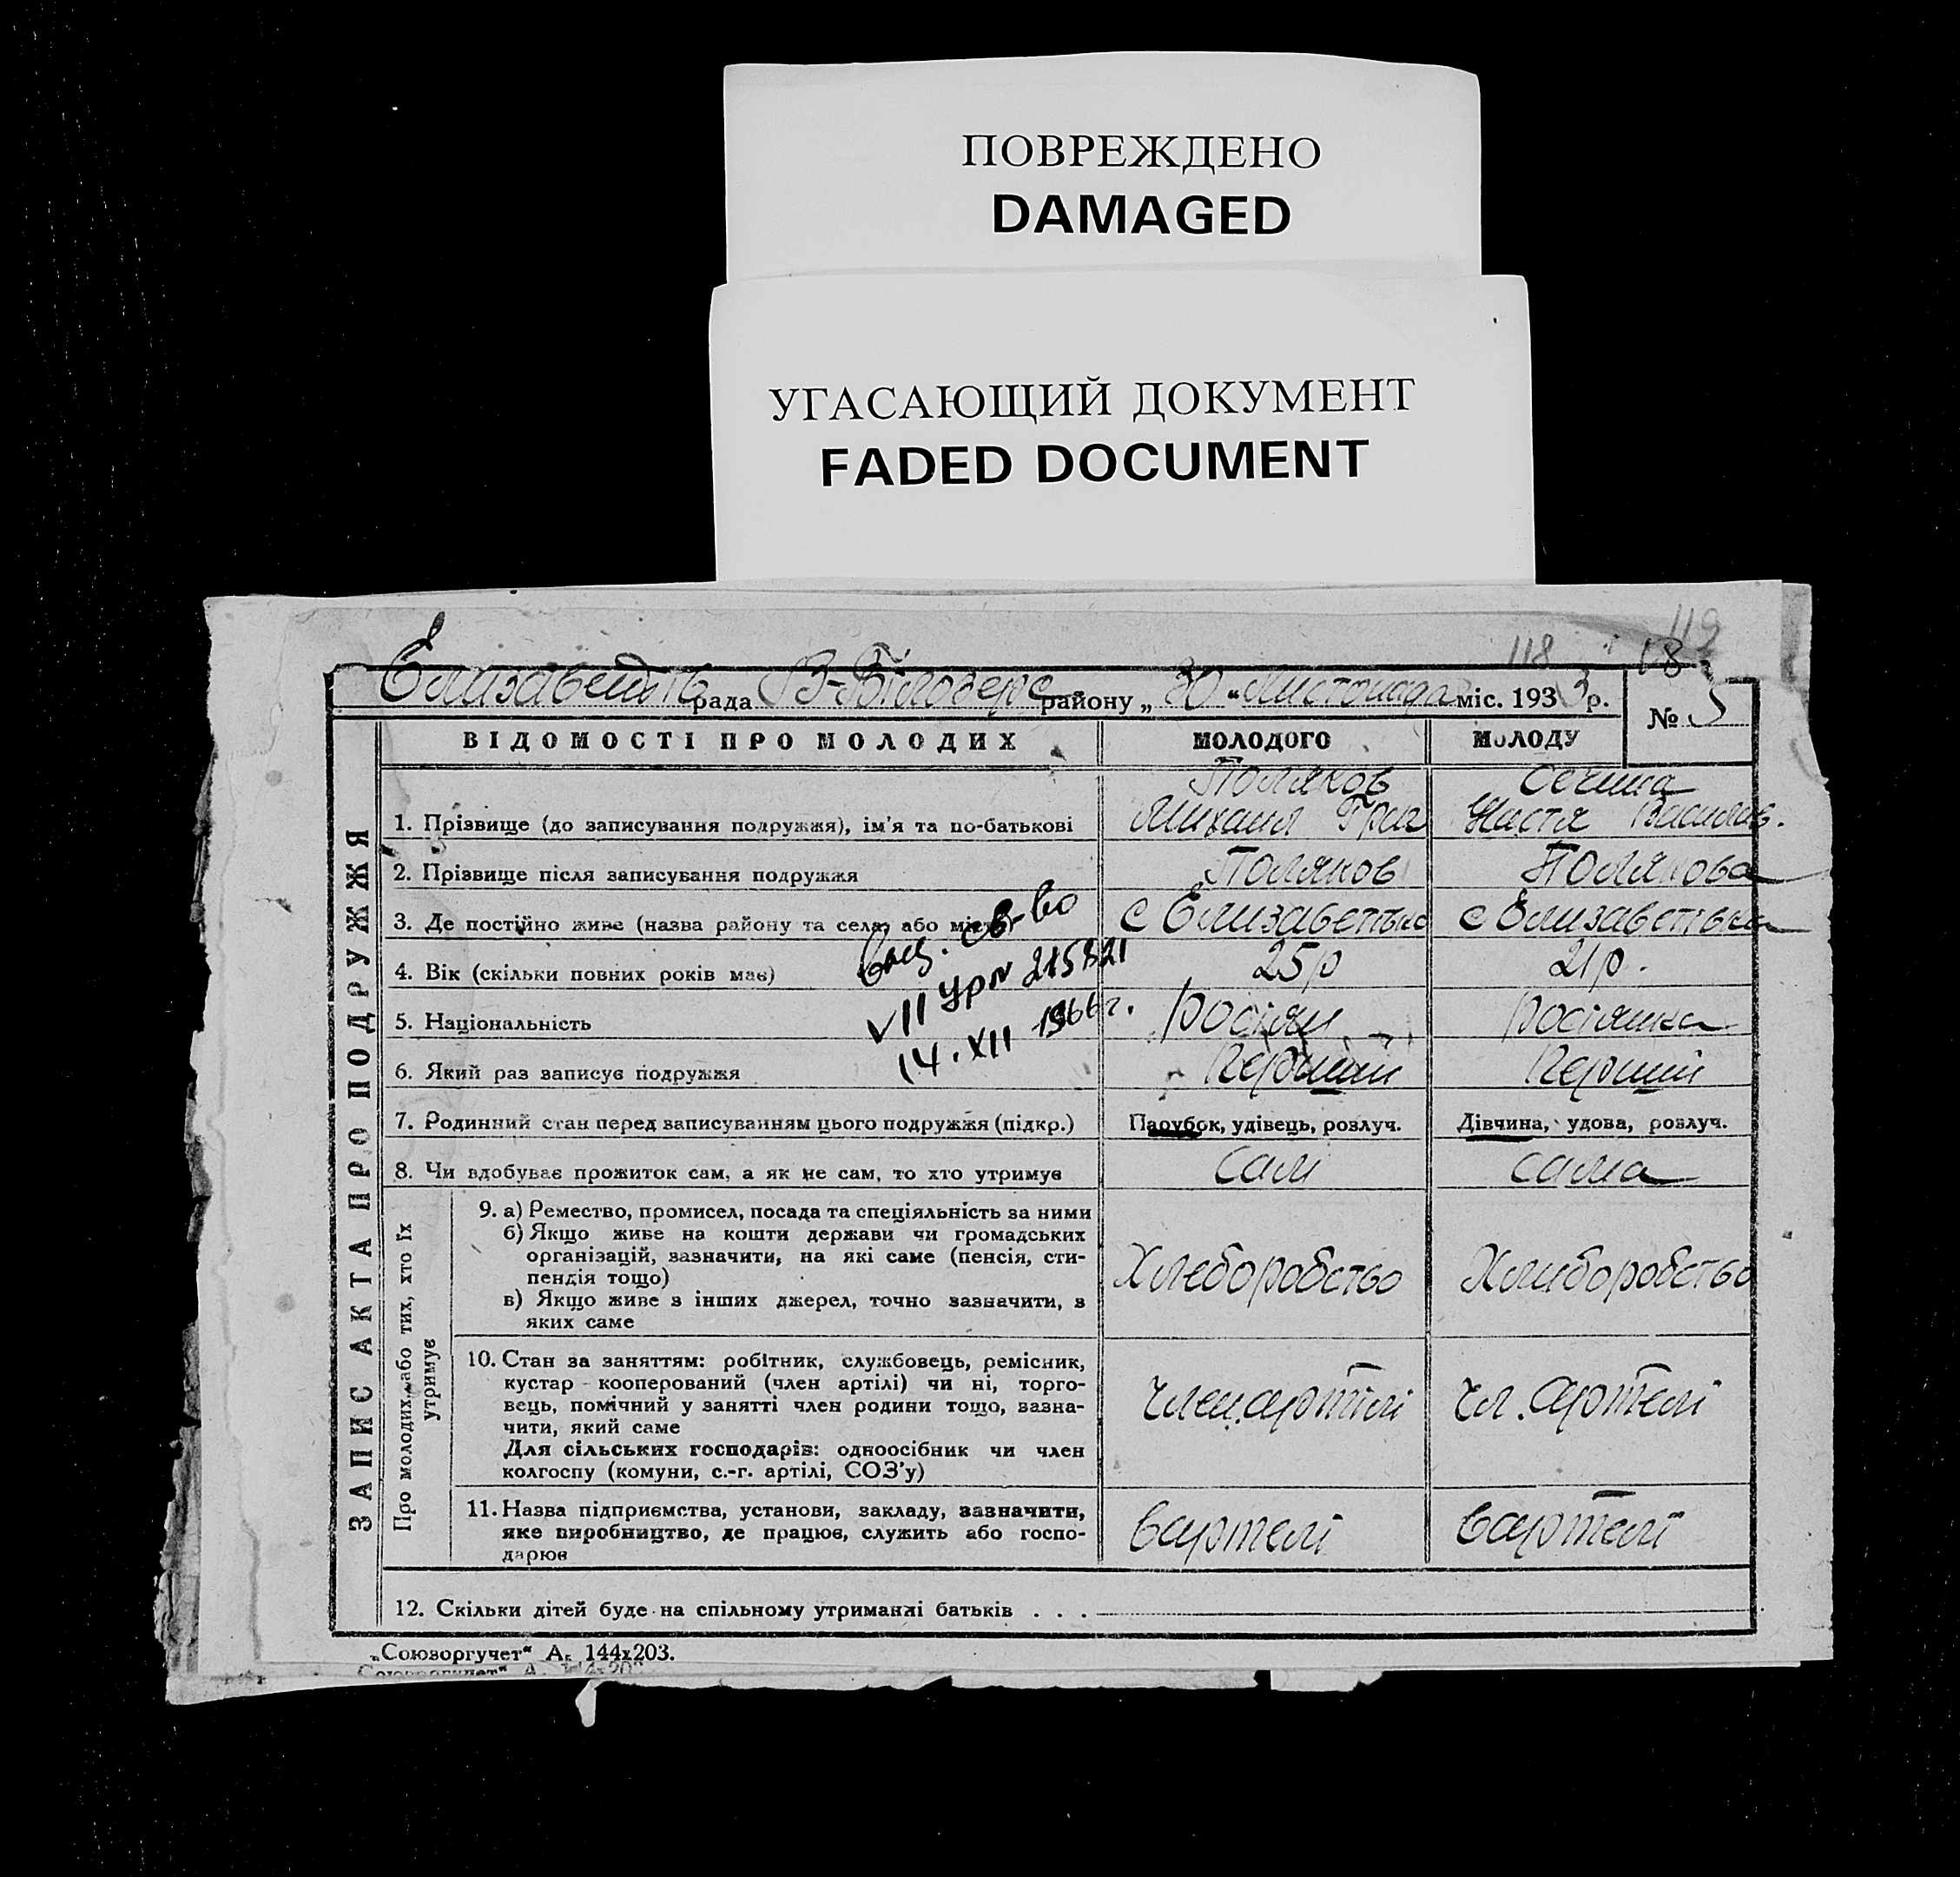 ПОВРЕЖДЕНО
DAMAGED
УГАСАЮЩИЙ ДОКУМЕНТ
FADED DOCUMENT
118 119
18
Елизаветів рада В-Білозерс району „ 30 “ Листопада міс. 1933 р.
№ 5
ЗАПИС АКТА ПРО ПОДРУЖЖЯ
ВІДОМОСТІ ПРО МОЛОДИХ МОЛОДОГО МОЛОДУ
Поляков
Михаил Григ
Настя Василів.
1. Прізвище (до записування подружжя), ім'я та по-батькові
2. Прізвище після записування подружжя Поляков Полякова
3. Де постійно живе (назва району та села, або міста) с Елизаветівка с Елизаветівка
4. Вік (скільки повних років має) 25р 21р.
выд. св-во
VII УР № 215821
14. XII 1966 г.
5. Національність Росіян Росіянка
6. Який раз записує подружжя Перший Перший
7. Родинний стан перед записуванням цього подружжя (підкр.) Парубок, удівець, розлуч. Дівчина, удова, розлуч.
8. Чи здобуває прожиток сам, а як не сам, то хто утримує Сам Сама
Про молодих, або тих, хто їх утримує
9. а) Ремество, промисел, посада та спеціяльність за ними
б) Якщо живе на кошти держави чи громадських
організацій, зазначити, на які саме (пенсія, сти-
пендія тощо)
в) Якщо живе з інших джерел, точно зазначити, з
яких саме
Хлеборобство Хлиборобство
10. Стан за заняттям: робітник, службовець, ремісник,
кустар - кооперований (член артілі) чи ні, торго-
вець, помічний у занятті член родини тощо, зазна-
чити, який саме
Для сільських господарів: одноосібник чи член
колгоспу (комуни, с.-г. артілі, СОЗ'у)
член.артілі чл. артелі
11. Назва підприємства, установи, закладу, зазначити,
яке виробництво, де працює, служить або госпо-
дарює
Вартелі Вартелі
12. Скільки дітей буде на спільному утриманні батьків . . .
„Союзоргучет“ А5 144х203.